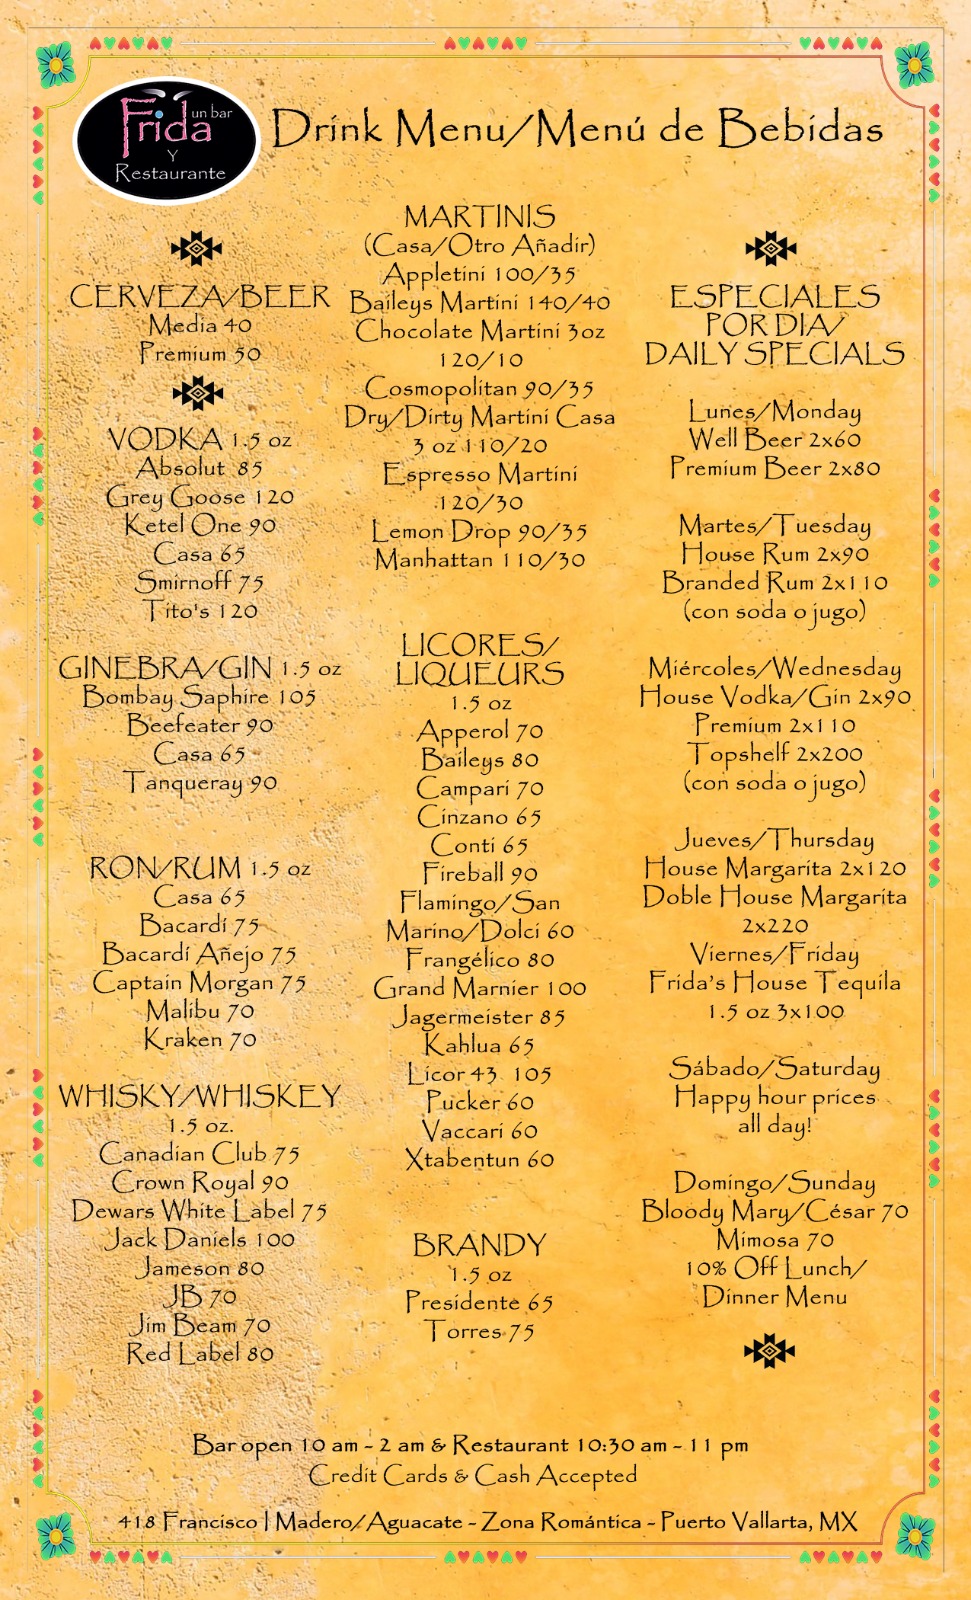 Frida un bar
Y
Restaurante
Drink Menu/Menú de Bebidas
CERVEZA/BEER
Media 40
Premium 50
VODKA 1.5 oz
Absolut 85
Grey Goose 120
Ketel One 90
Casa 65
Smirnoff 75
Tito's 120
GINEBRA/GIN 1.5 oz
Bombay Saphire 105
Beefeater 90
Casa 65
Tanqueray 90
RON/RUM 1.5 oz
Casa 65
Bacardí 75
Bacardí Añejo 75
Captain Morgan 75
Malibu 70
Kraken 70
WHISKY/WHISKEY
1.5 oz.
Canadian Club 75
Crown Royal 90
Dewars White Label 75
Jack Daniels 100
Jameson 80
JB 70
Jim Beam 70
Red Label 80
MARTINIS
(Casa/Otro Añadir)
Appletini 100/35
Baileys Martini 140/40
Chocolate Martini 3oz
120/10
Cosmopolitan 90/35
Dry/Dirty Martini Casa
3 oz 110/20
Espresso Martini
120/30
Lemon Drop 90/35
Manhattan 110/30
LICORES/
LIQUEURS
1.5 oz
Apperol 70
Baileys 80
Campari 70
Cinzano 65
Conti 65
Fireball 90
Flamingo/San
Marino/Dolci 60
Frangélico 80
Grand Marnier 100
Jagermeister 85
Kahlua 65
Licor 43 105
Pucker 60
Vaccari 60
Xtabentun 60
BRANDY
1.5 oz
Presidente 65
Torres 75
ESPECIALES
POR DIA/
DAILY SPECIALS
Lunes/Monday
Well Beer 2x60
Premium Beer 2x80
Martes/Tuesday
House Rum 2x90
Branded Rum 2x110
(con soda o jugo)
Miércoles/Wednesday
House Vodka/Gin 2x90
Premium 2x110
Topshelf 2x200
(con soda o jugo)
Jueves/Thursday
House Margarita 2x120
Doble House Margarita
2x220
Viernes/Friday
Frida's House Tequila
1.5 oz 3x100
Sábado/Saturday
Happy hour prices
all day!
Domingo/Sunday
Bloody Mary/César 70
Mimosa 70
10% Off Lunch/
Dinner Menu
Bar open 10 am - 2 am & Restaurant 10:30 am - 11 pm
Credit Cards & Cash Accepted
418 Francisco I Madero/Aguacate - Zona Romántica - Puerto Vallarta, MX